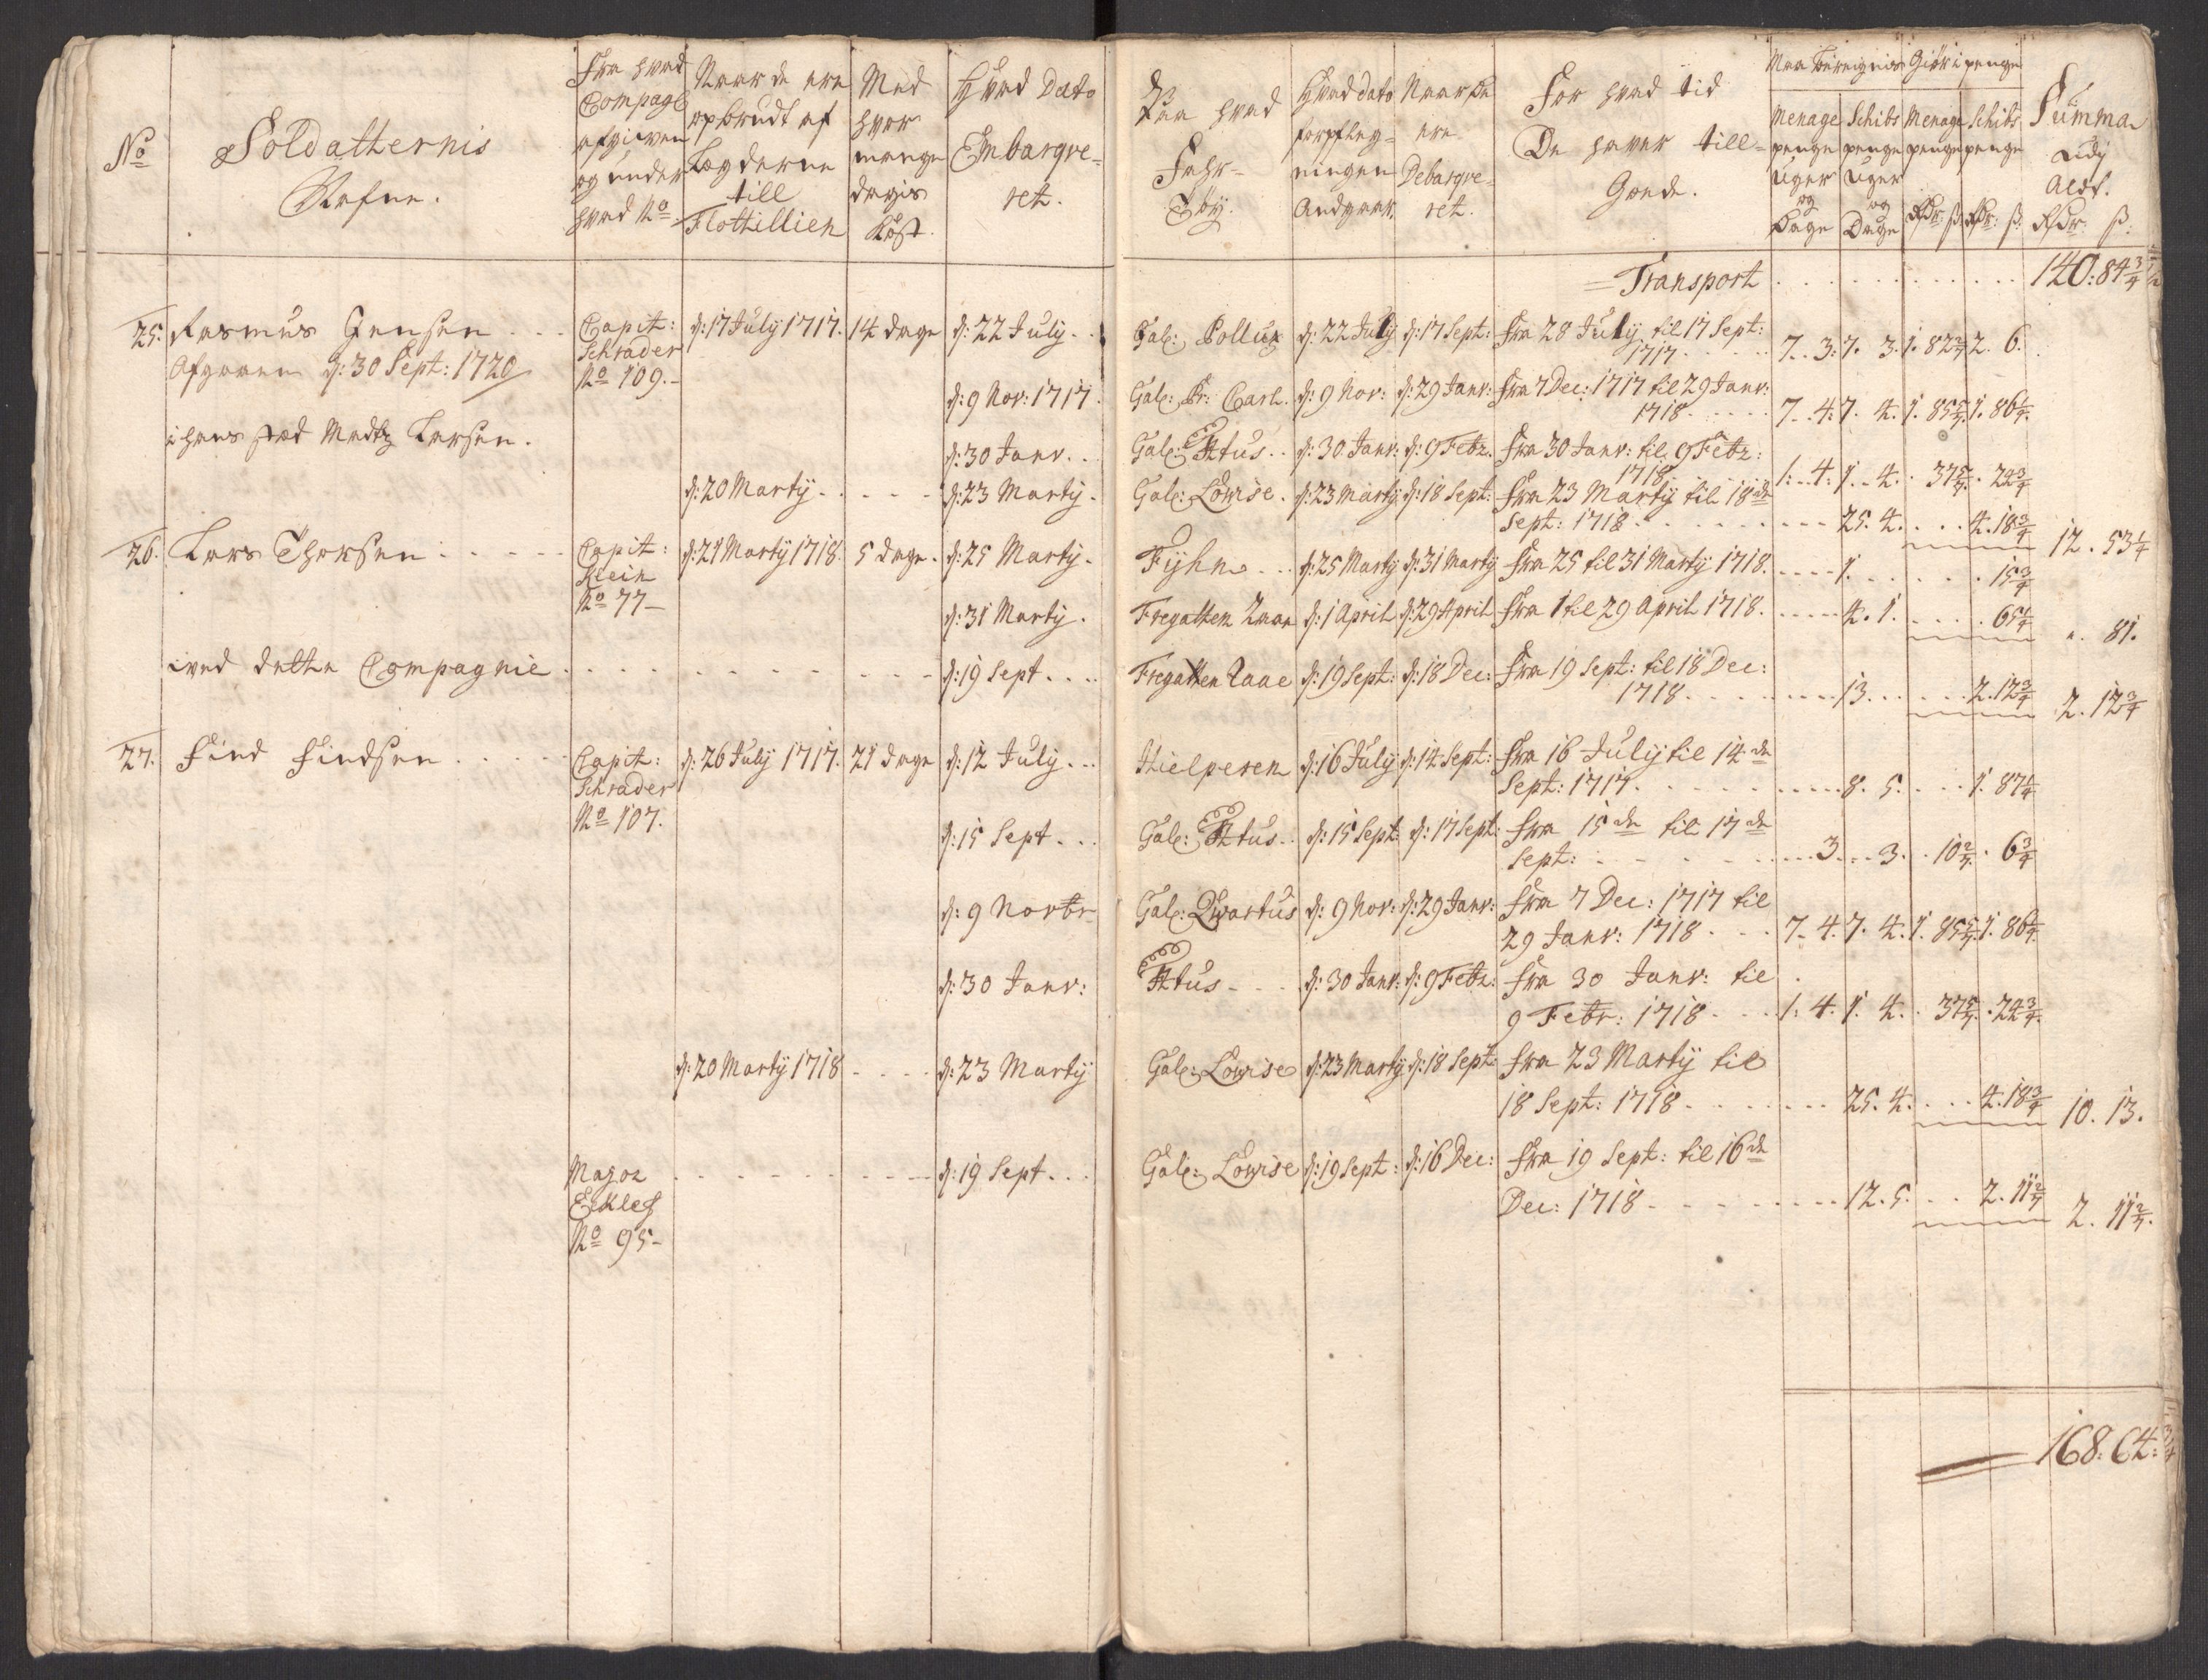 No
Soldatternis
Nafne.
Fra hvad
Compag
afgiven
og under
hvad No
Naar de ere
opbrudt af
Lægderne
till
Flottillien
Med
hvor
mange
dagis
Kost.
Hvad Dato
Embarqve-
ret.
Paa hvad
Fahr-
Tøy.
Hvad dato
forpfleg-
ningen
Andgaar.
Naar de
ere
Debarqve-
ret.
For hvad tid
De haver till-
Gode.
Giør i penge
Menage
penge
Uger
og
Dage
Schibs
penge
Uger
og
Dage
Menage
penge
Rdr: ß
Schibs
penge
Rdr: ß:
Summa
Rdr: ß:
Transport . . . . . . . . . . . 140: 84 3/4
25. Rasmus Jensen . . . Capit: d: 17 July 1717. 14 dage d: 22 July . . Gal: Pollux d: 22 July d: 17 Sept: Fra 28 July til 17 Sept: 7. 3. 7. 3. 1. 82 2/7 2. 6.
Afgaaen d: 30 Sept: 1720 Schrader 1717 . . .
No 109. d: 9 Nov: 1717. Gal: Pr: Carl. d: 9 Nov: d: 29 Janv: Fra 7 Dec: 1717 til 29 Janv: 7. 4. 7. 4. 1. 85 5/7. 1. 86 1/4.
1718 . . .
i hans sted Madtz Larsen. d: 30 Janv. . Gal: Ptus . . d: 30 Janv: d: 9 Febr. Fra 30 Janv: til 9 Febr: 1. 4. 1. 4. . 37 5/7. . 24 3/4
1718
d: 20 Martij - . . . - d: 23 Martij. Gal: Lovise. d: 23 Martij d: 18 Sept: Fra 23 Martij til 18de
Sept: 1718 . . . 25. 4. . . 4. 18 3/4 12. 53 1/4
26. Lars Thorsen . . . Capit: d: 21 Martij 1718. 5 dage. d: 25 Martij. Fyhn . . d: 25 Martij d: 31 Martij Fra 25 til 31 Martij 1718. . . . 1. . . . 15 3/4
Klein
No 77 - d: 31 Martij. Fregatten Raae d: 1 April d: 29 April Fra 1 til 29 April 1718. . . . 4. 1. . . . 65 1/4 ". 81.
ived dette Compagnie . . . d: 19 Sept . . . Fregatten Raae d: 19 Sept: d: 18 Dec: Fra 19 Sept: til 18 Dec:
1718 . . . 13. . . . 2. 12 3/4 2. 12 3/4
27. Find Findsen . . . Capit: d: 26 July 1717. 21 dage d: 12 July . . Hielperen d: 16 July d: 14 Sept: Fra 16 July til 14de
Schrader Sept: 1717 . . . 8. 5. . . 1. 87 1/4
No 107. d: 15 Sept . . . Gal: Ptus . . d: 15 Sept: d: 17 Sept: Fra 15de til 17de
Sept: . . . 3. . 3. . 10 2/7. . 6 3/4
d: 9 Novbr Gal: Qvartus d: 9 Nov: d: 29 Janv: Fra 7 Dec: 1717 til
29 Janv: 1718 . . . 7. 4. 7. 4. 1. 85 5/7. 1. 86 1/4.
d: 30 Janv: Ptus - . . d: 30 Janv: d: 9 Febr: Fra 30 Janv: til
9 Febr: 1718 . . . 1. 4. 1. 4. . 37 5/7. . 24 3/4.
d: 20 Martij 1718 . . . d: 23 Martij Gal: Lovise d: 23 Martij d: 18 Sept: Fra 23 Martij til
18 Sept: 1718 . . . 25. 4. . . 4. 18 3/4 10. 13.
Major . . . d: 19 Sept . . . Gal: Lovise d: 19 Sept: d: 16 Dec: Fra 19 Sept: til 16de
No 95 - Dec: 1718 . . . 12. 5. . . 2. 11 2/7 2. 11 2/7.
168: 64: